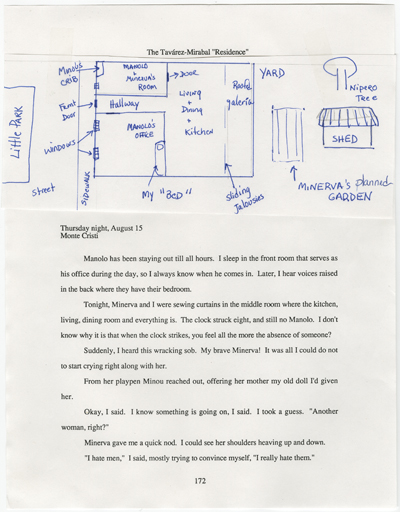 The Tavárez-Mirabal "Residence"
Minou's
CRIB
MANOLO
+
MINERVA'S
ROOM
DOOR
YARD
Nípero
Tree
Little PARK
Front
Door
Hallway
Living
+
Dining
+
Kitchen
Roofed
galería
SHED
WINDOWS
MANOLO'S
OFFICE
Street
SIDEWALK
My "BED"
Sliding
Jalousies
MINERVA'S planned
GARDEN
Thursday night, August 15
Monte Cristi
Manolo has been staying out till all hours. I sleep in the front room that serves as
his office during the day, so I always know when he comes in. Later, I hear voices raised
in the back where they have their bedroom.
Tonight, Minerva and I were sewing curtains in the middle room where the kitchen,
living, dining room and everything is. The clock struck eight, and still no Manolo. I don't
know why it is that when the clock strikes, you feel all the more the absence of someone?
Suddenly, I heard this wracking sob. My brave Minerva! It was all I could do not
to start crying right along with her.
From her playpen Minou reached out, offering her mother my old doll I'd given
her.
Okay, I said. I know something is going on, I said. I took a guess. "Another
woman, right?"
Minerva gave me a quick nod. I could see her shoulders heaving up and down.
"I hate men," I said, mostly trying to convince myself, "I really hate them."
172